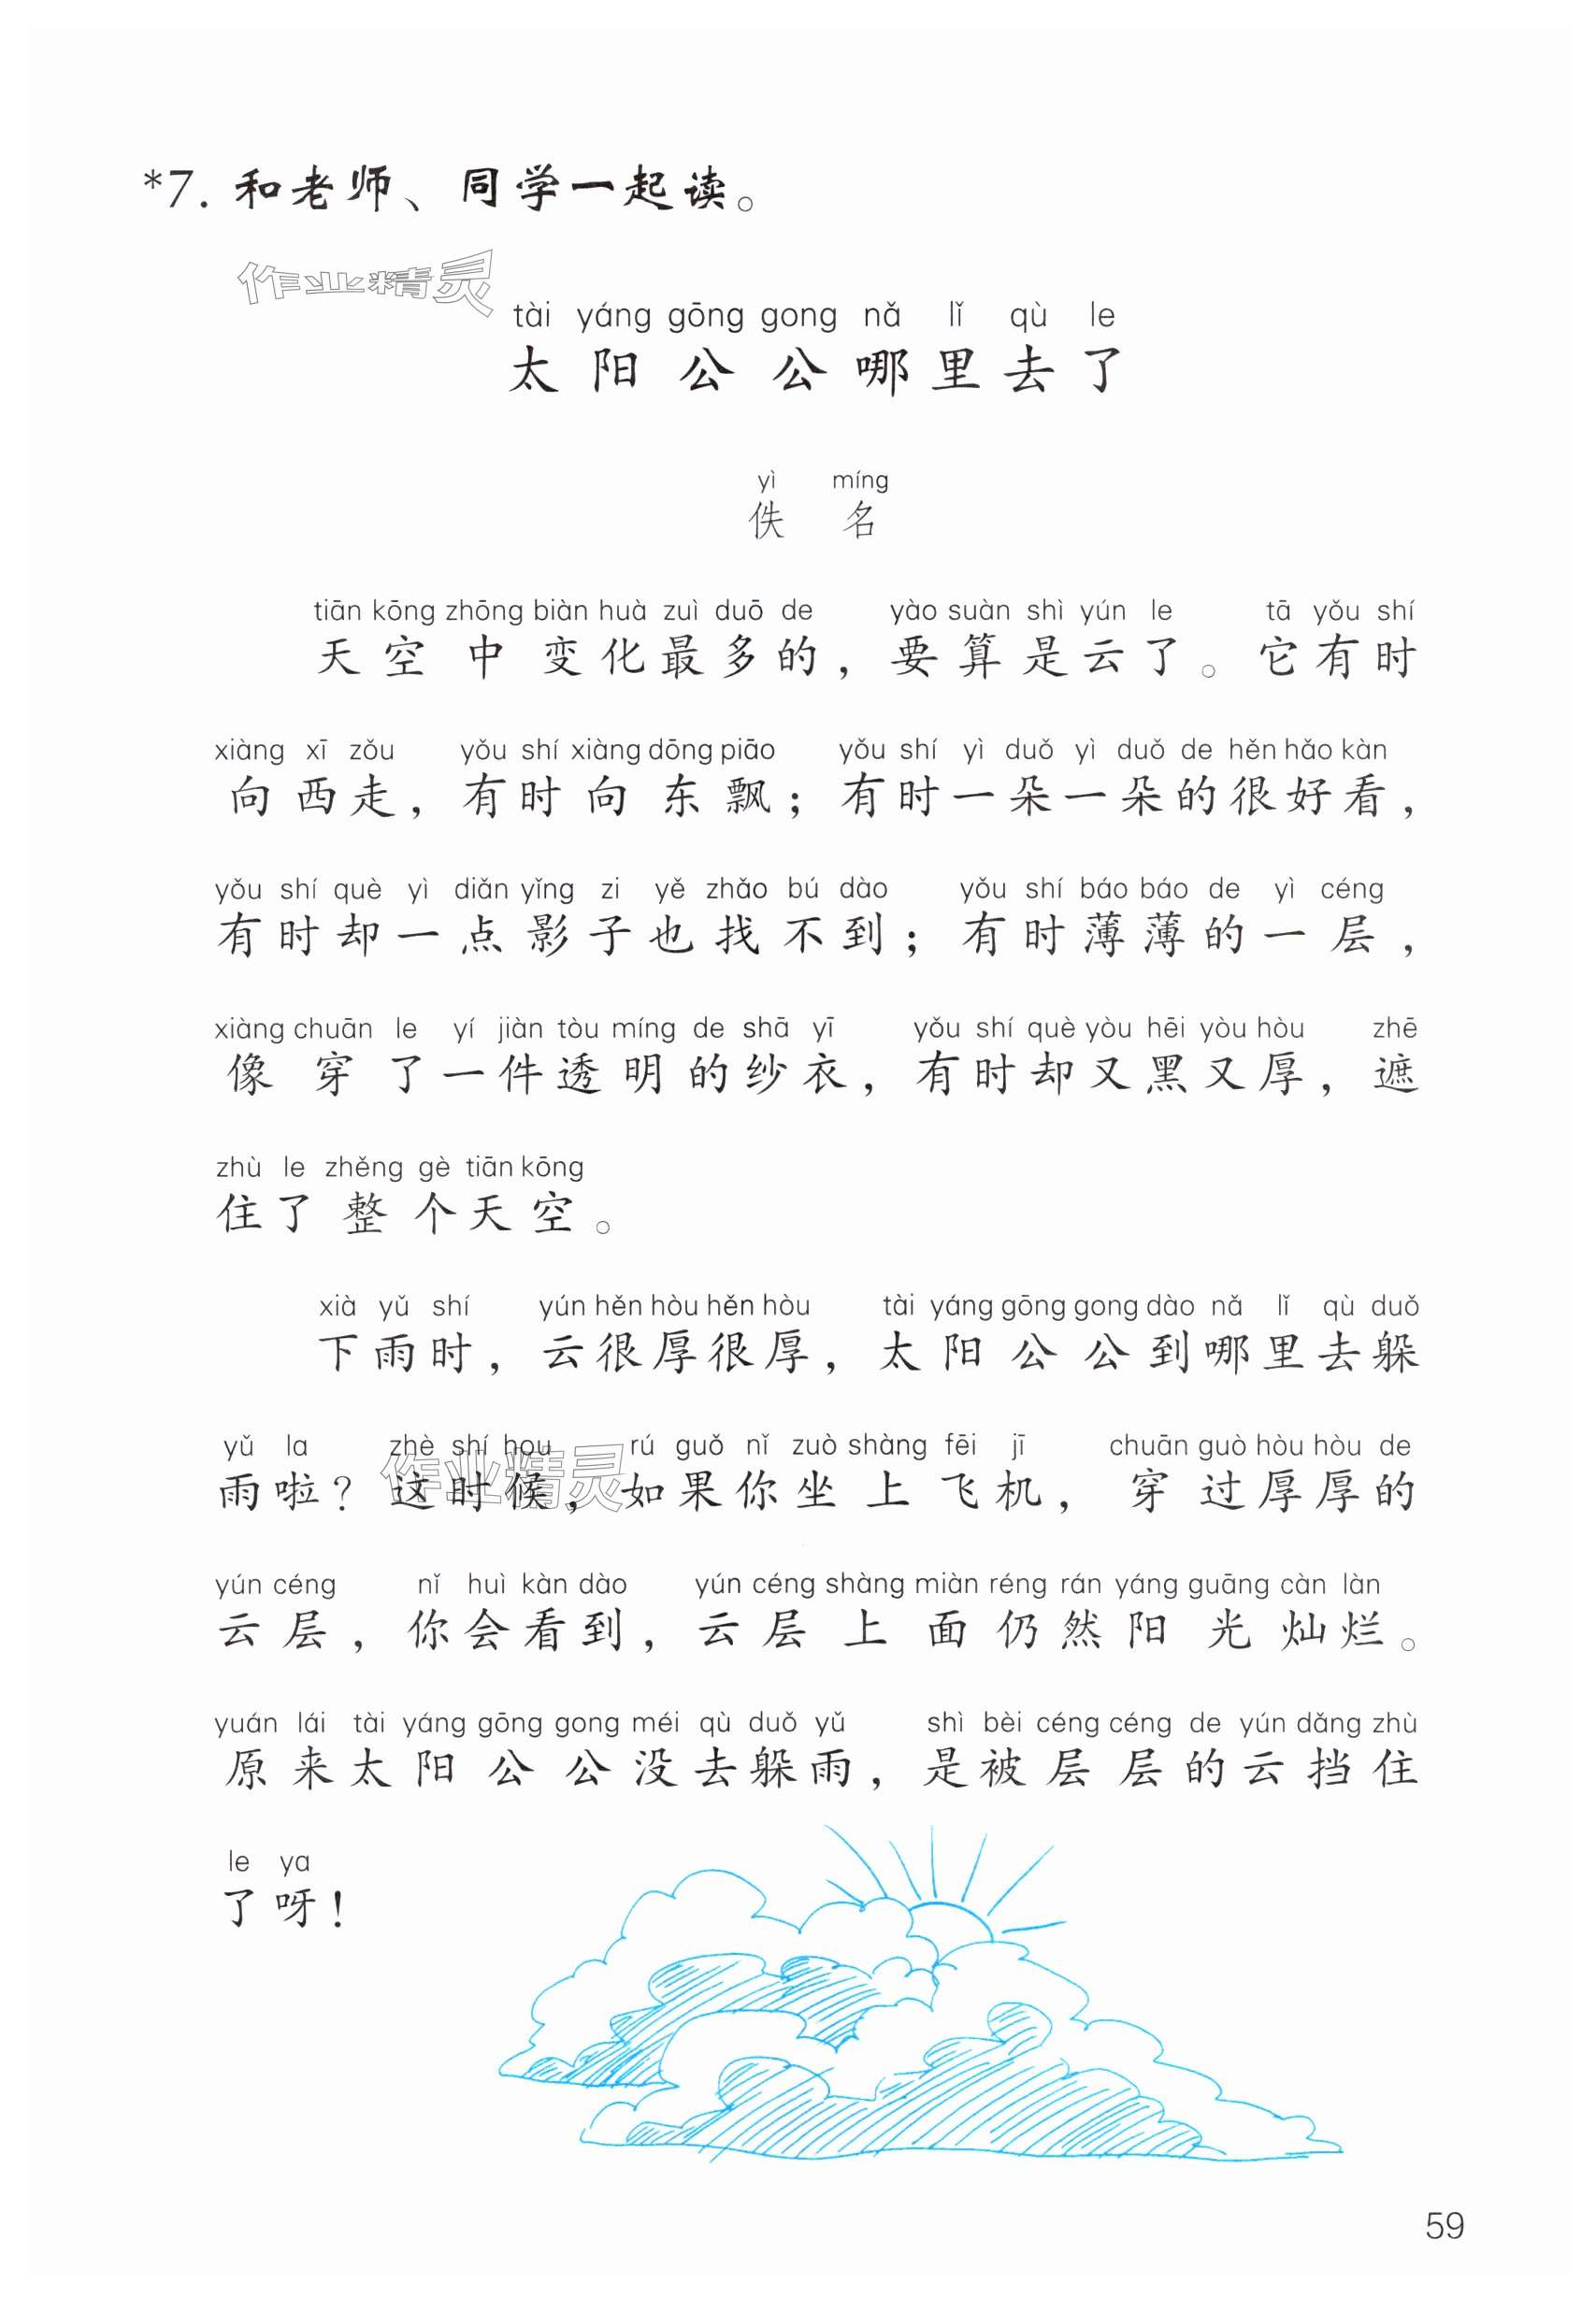 *7. 和老师、同学一起读。
作业精灵
tài yáng gōng gong nǎ lǐ qù le
太阳公公哪里去了
yì míng
佚名
tiān kōng zhōng biàn huà zuì duō de yào suàn shì yún le tā yǒu shí
天空中变化最多的，要算是云了。它有时
xiàng xī zǒu yǒu shí xiàng dōng piāo yǒu shí yì duǒ yì duǒ de hěn hǎo kàn
向西走，有时向东飘；有时一朵一朵的很好看，
yǒu shí què yì diǎn yǐng zi yě zhǎo bú dào yǒu shí báo báo de yì céng
有时却一点影子也找不到；有时薄薄的一层，
xiàng chuān le yí jiàn tòu míng de shā yī yǒu shí què yòu hēi yòu hòu zhē
像穿了一件透明的纱衣，有时却又黑又厚，遮
zhù le zhěng gè tiān kōng
住了整个天空。
xià yǔ shí yún hěn hòu hěn hòu tài yáng gōng gong dào nǎ lǐ qù duǒ
下雨时，云很厚很厚，太阳公公到哪里去躲
yǔ la zhè shí hou rú guǒ nǐ zuò shàng fēi jī chuān guò hòu hòu de
雨啦？这时候，如果你坐上飞机，穿过厚厚的
作业精灵
yún céng nǐ huì kàn dào yún céng shàng miàn réng rán yáng guāng càn làn
云层，你会看到，云层上面仍然阳光灿烂。
yuán lái tài yáng gōng gong méi qù duǒ yǔ shì bèi céng céng de yún dǎng zhù
原来太阳公公没去躲雨，是被层层的云挡住
le ya
了呀！
59